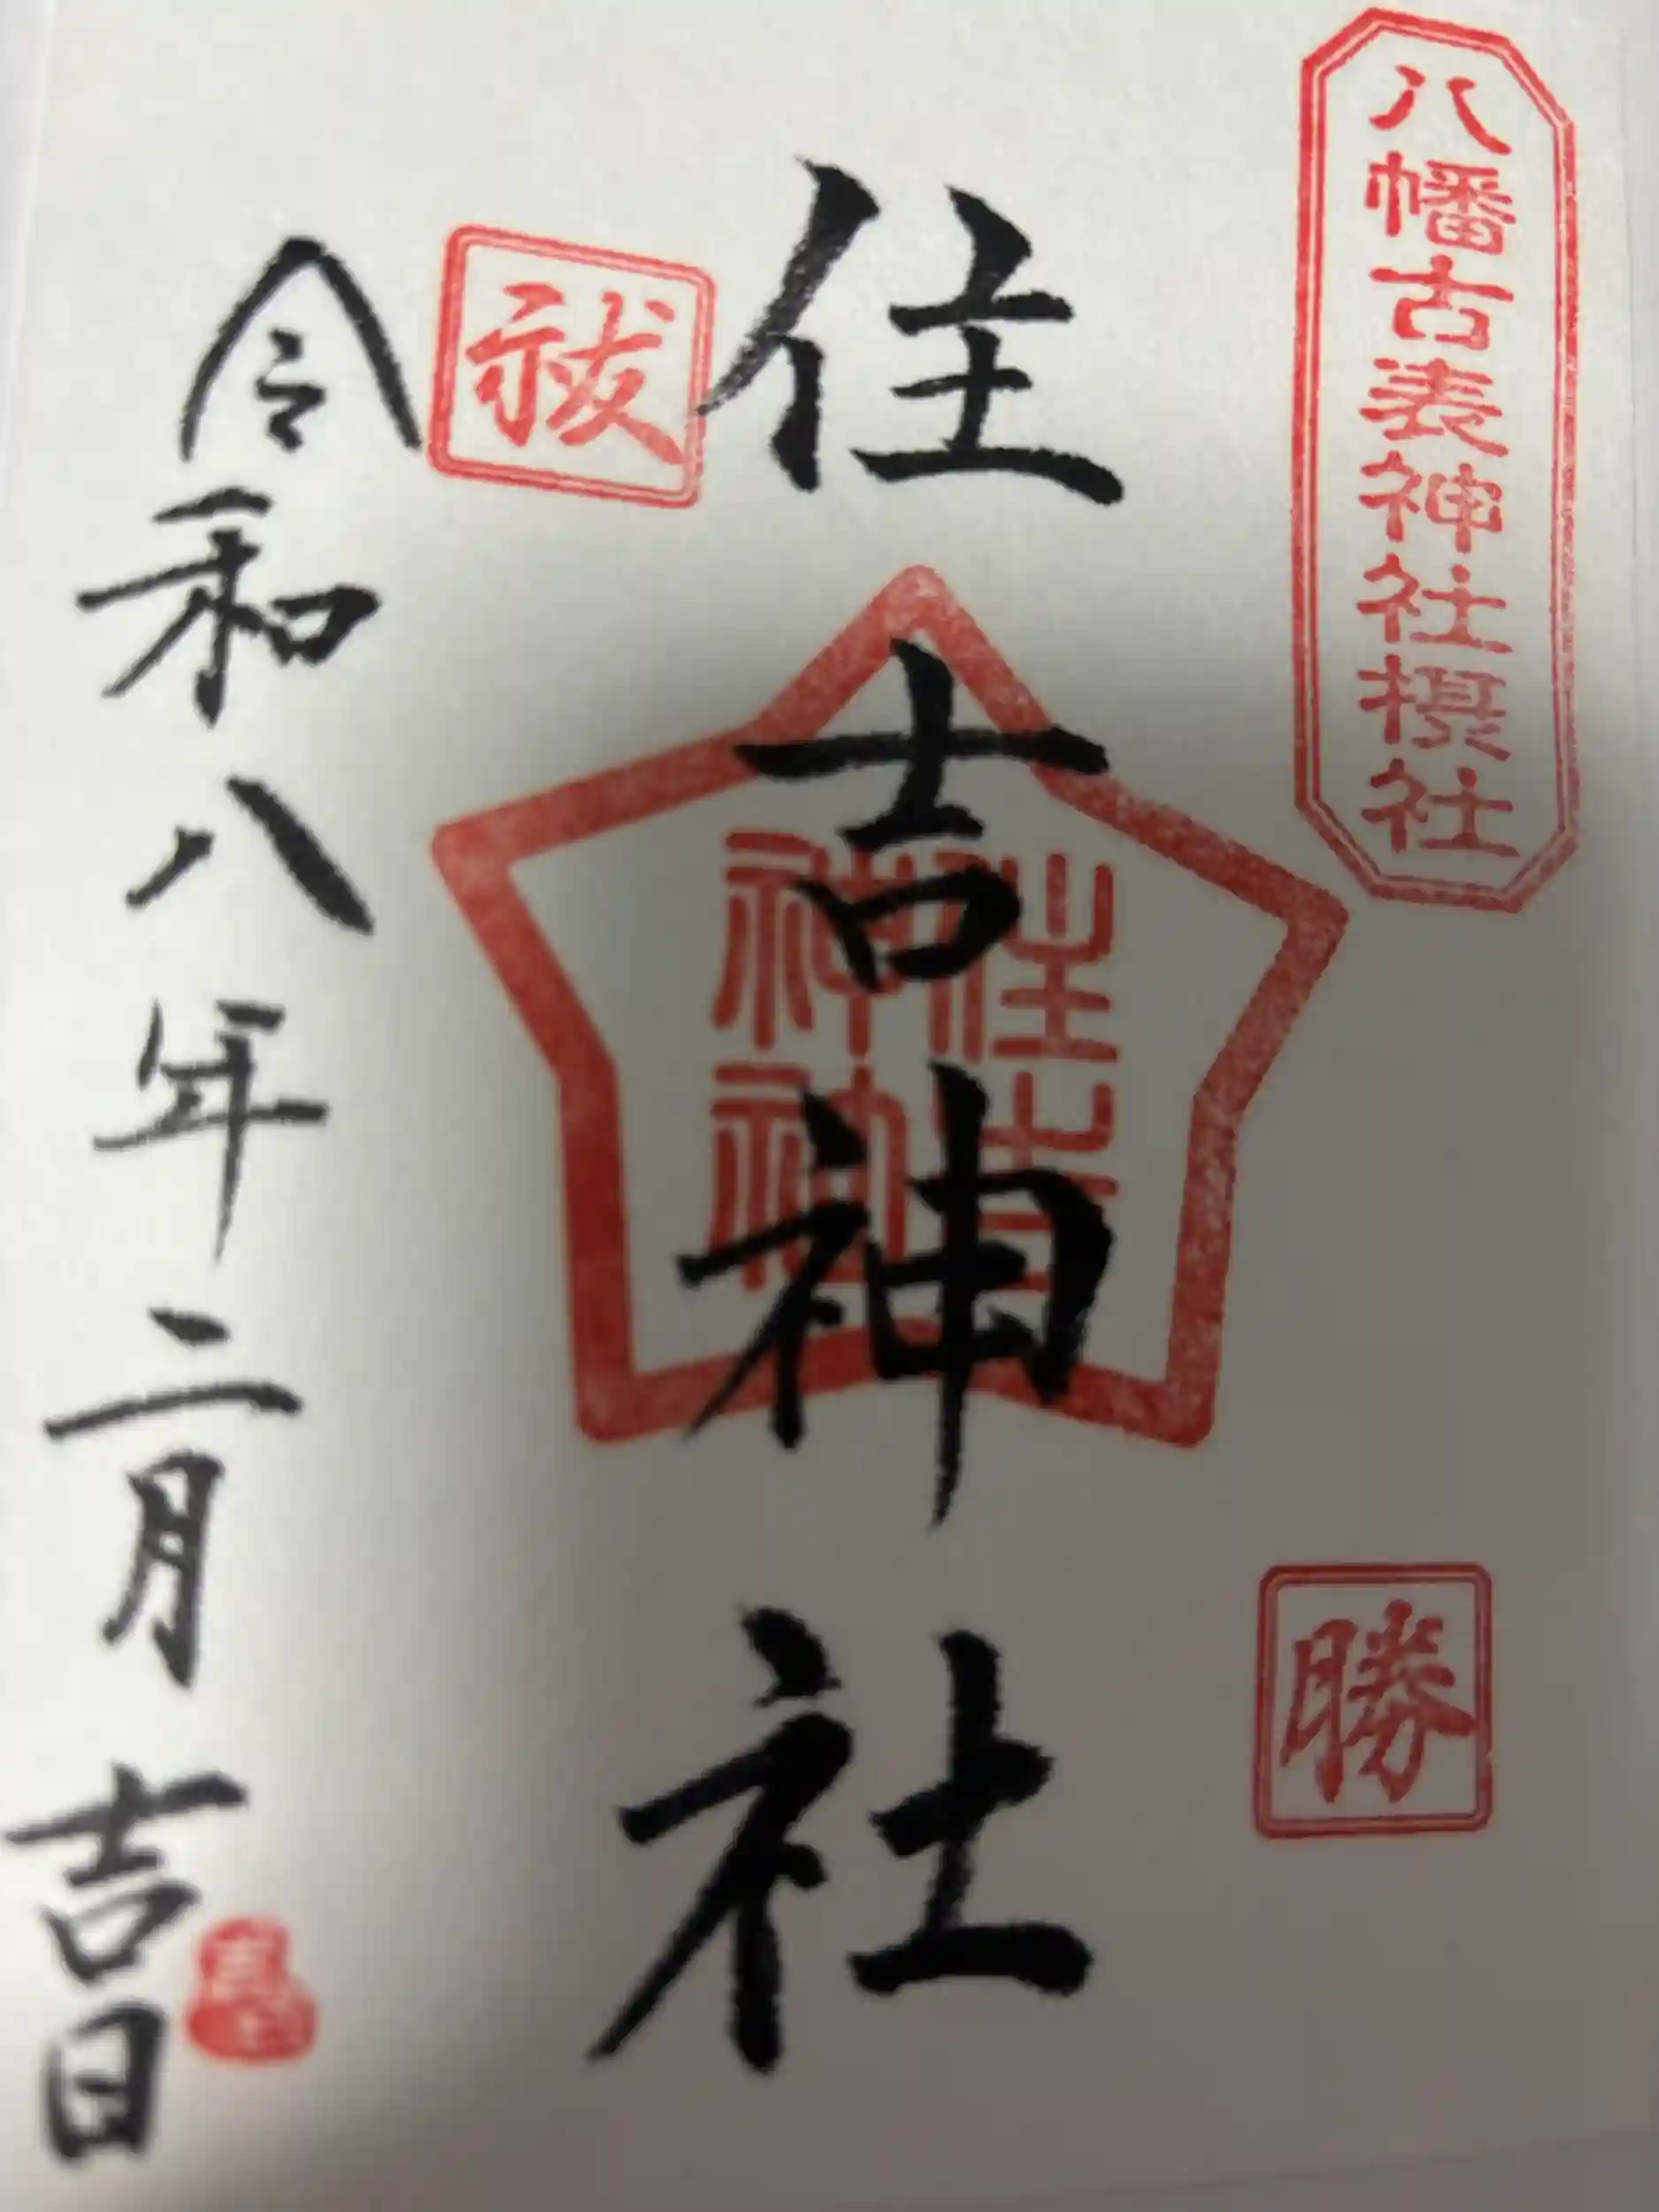 八幡古表神社摂社
勝
住吉神社
住吉
神社
祓
令和八年二月吉日